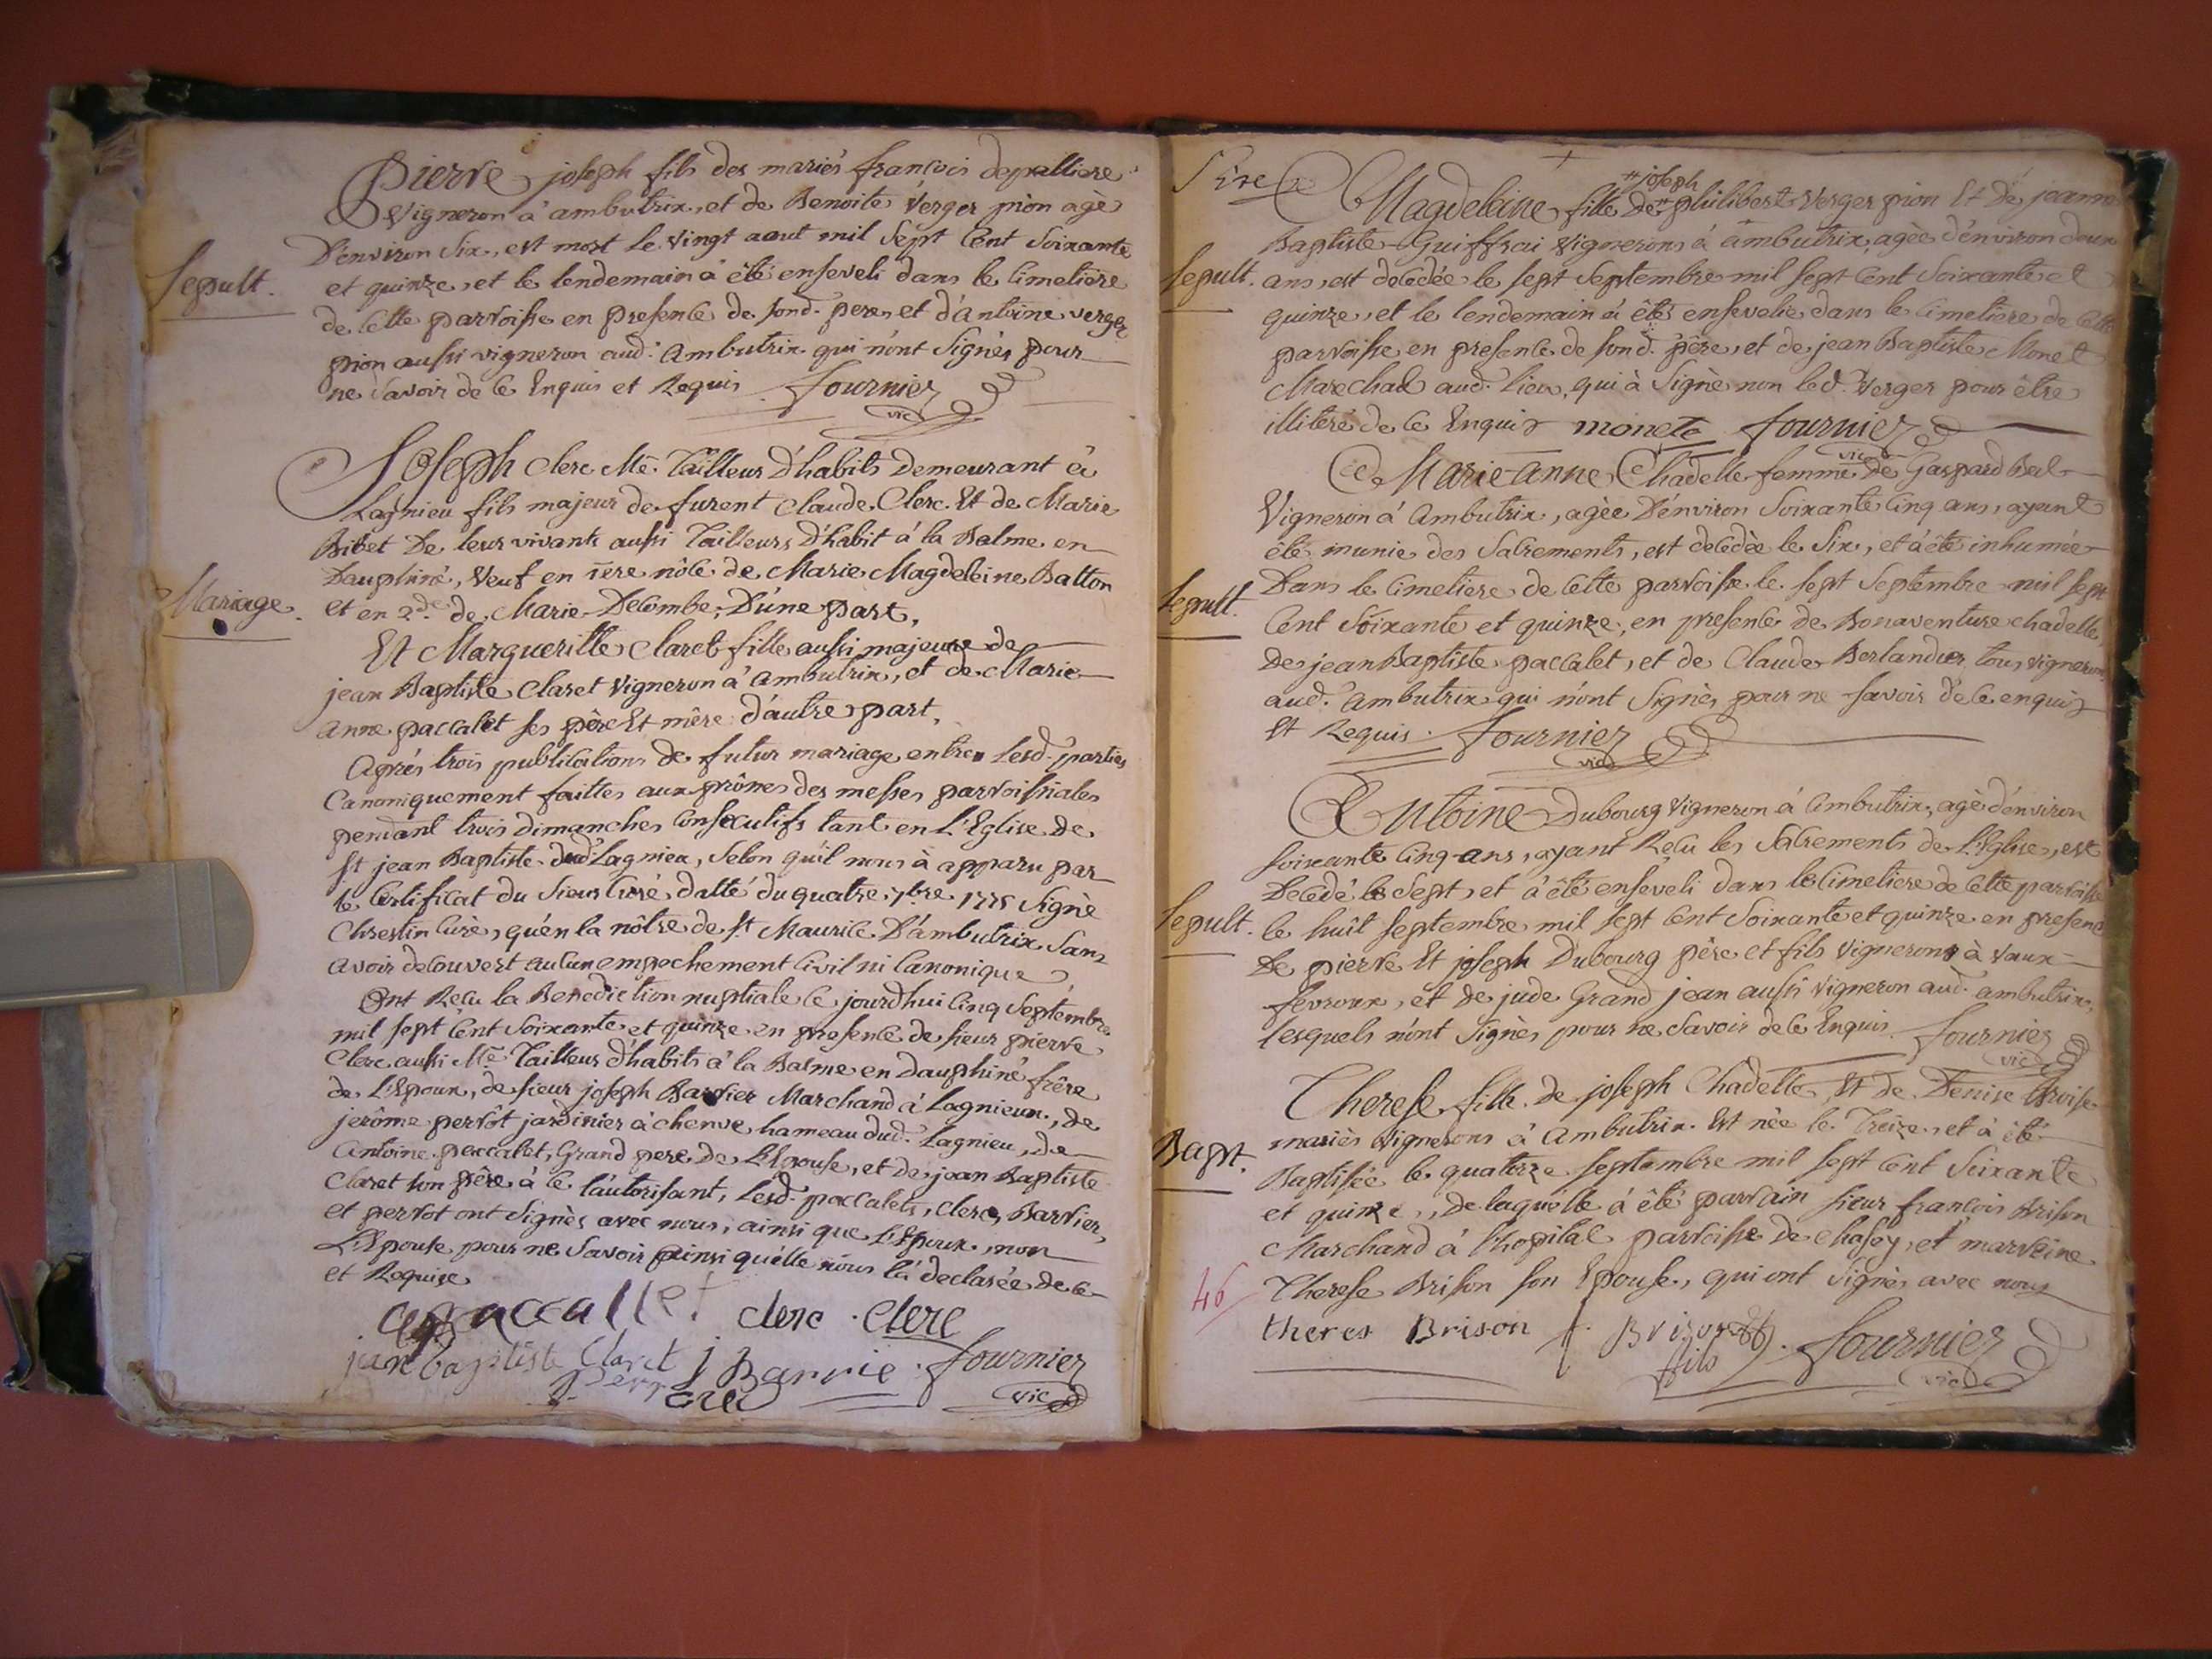 Pierre joseph fils des mariés françois depralliere
Vigneron a ambutrix, et de Benoite Verger pion agè
D'environ Six, est mort le vingt aout mil Sept Cent Soixante
Sepult.
et quinze, et le lendemain à été enseveli dans le Cimetiére
de Cette parroisse en presence de sond. pere, et d'antoine verger
pion aussi vigneron aud. Ambutrix qui n'ont Signés pour
ne savoir de ce Enquis et Requis. fournier
vic
Joseph Clerc Me. Tailleur D'habits Demeurant à
Lagnieu fils majeur de furent Claude Clerc Et de Marie
Bibet De leur vivants aussi Tailleurs D'habit à la Balme en
Dauphiné, Veuf en 1ere nôce de Marie Magdeleine Batton
Mariage.
et en 2de. de Marie Decombe, D'une part,
Et Margueritte Claret fille aussi majeure de
jean Baptiste Claret Vigneron à Ambutrix, et de Marie
Anne paccalet ses père Et mêre d'autre part,
Aprés trois publications de futur mariage entre Lesd. parties
Canoniquement faittes aux prônes des messes parroissiales
pendant trois dimanches Consécutifs tant en L'Eglise de
St jean Baptiste dud Lagnieu, Selon qu'il nous à apparu par
le Certificat du Sieur Curé datté du quatre 7bre 1775 Signè
Chrestin Curé, qu'en la nôtre de St Maurice D'ambutrix Sans
avoir decouvert aucun empechement Civil ni Canonique
Ont Reçu la Benediction nuptiale ce jourd'hui Cinq Septembre
mil sept Cent Soixante et quinze en presence de sieur pierre
Clerc aussi Me Tailleur d'habits à la Balme en dauphiné frêre
de L'Epoux, de sieur joseph Barrier Marchand à Lagnieux, de
jerôme perrôt jardinier à chenve hameau dud. Lagnieu, de
Antoine paccalet, Grand pere de L'Epouse, et de jean Baptiste
Claret son père à ce l'autorisant, Lesd. paccalets, clercs, Barrier,
et perrot ont Signès avec nous, ainsi que L'Epoux, non
L'Epouse pour ne Savoir ainsi qu'elle nous l'a declarée de ce
et Requise
paccallet clerc . Clerc
jean baptiste Claret j Barrie . fournier
vic
Magdeleine fille De # philibert Verger pion Et De jeanne
# joseph
Baptiste Guiffrai Vignerons à ambutrix, agèe d'environ deux
Sepult.
ans, est decedée le sept Septembre mil sept Cent Soixante et
quinze, et le lendemain à été ensevelie dans le Cimetiere de Cette
parroisse en presence de sond. père, et de jean Baptiste Monet
Marechal aud. lieu, qui à Signè non led. Verger pour être
illiteré de ce Enquis monete fournier
vic
Marie-anne Chadelle femme de Gaspard Bal
Vigneron à Ambutrix, agèe D'environ Soixante Cinq ans, ayant
été munie des Sacrements, est decedèe le Six, et à été inhumée
Sepult.
Dans le Cimetiere de Cette parroisse le sept Septembre mil sept
Cent Soixante et quinze, en presence de Bonaventure chadelle,
De jean Baptiste paccalet, et de Claude Berlandier tous vignerons
aud. Ambutrix qui n'ont Signès pour ne savoir de ce enquis
Et Requis. fournier
vic
Antoine Dubourg Vigneron à Ambutrix, agè d'environ
soixante Cinq ans, ayant Reçu les Sacrements de L'Eglise, est
Decedé le Sept, et à été enseveli dans le Cimetiere de Cette parroisse
Sepult.
le huît septembre mil sept Cent Soixante et quinze en presence
De pierre Et joseph Dubourg père et fils Vignerons à Vaux
fevroux, et de jude Grand jean aussi Vigneron aud. ambutrix,
lesquels n'ont Signès pour ne Savoir de ce Enquis. fournier
vic
Therese fille de joseph Chadelle, Et de Denise
mariès Vignerons à Ambutrix. Est née le Treize, et à été
Bapt.
Baptisée le quatorze septembre mil sept Cent Soixante
et quinze, de laquelle à été parrain sieur francois Brison
Marchand à l'hopital parroisse de Chasey, et marreine
46
Therese Brison son Epouse, qui ont Signès avec nous
theres Brison f. Brison fils . fournier
vic